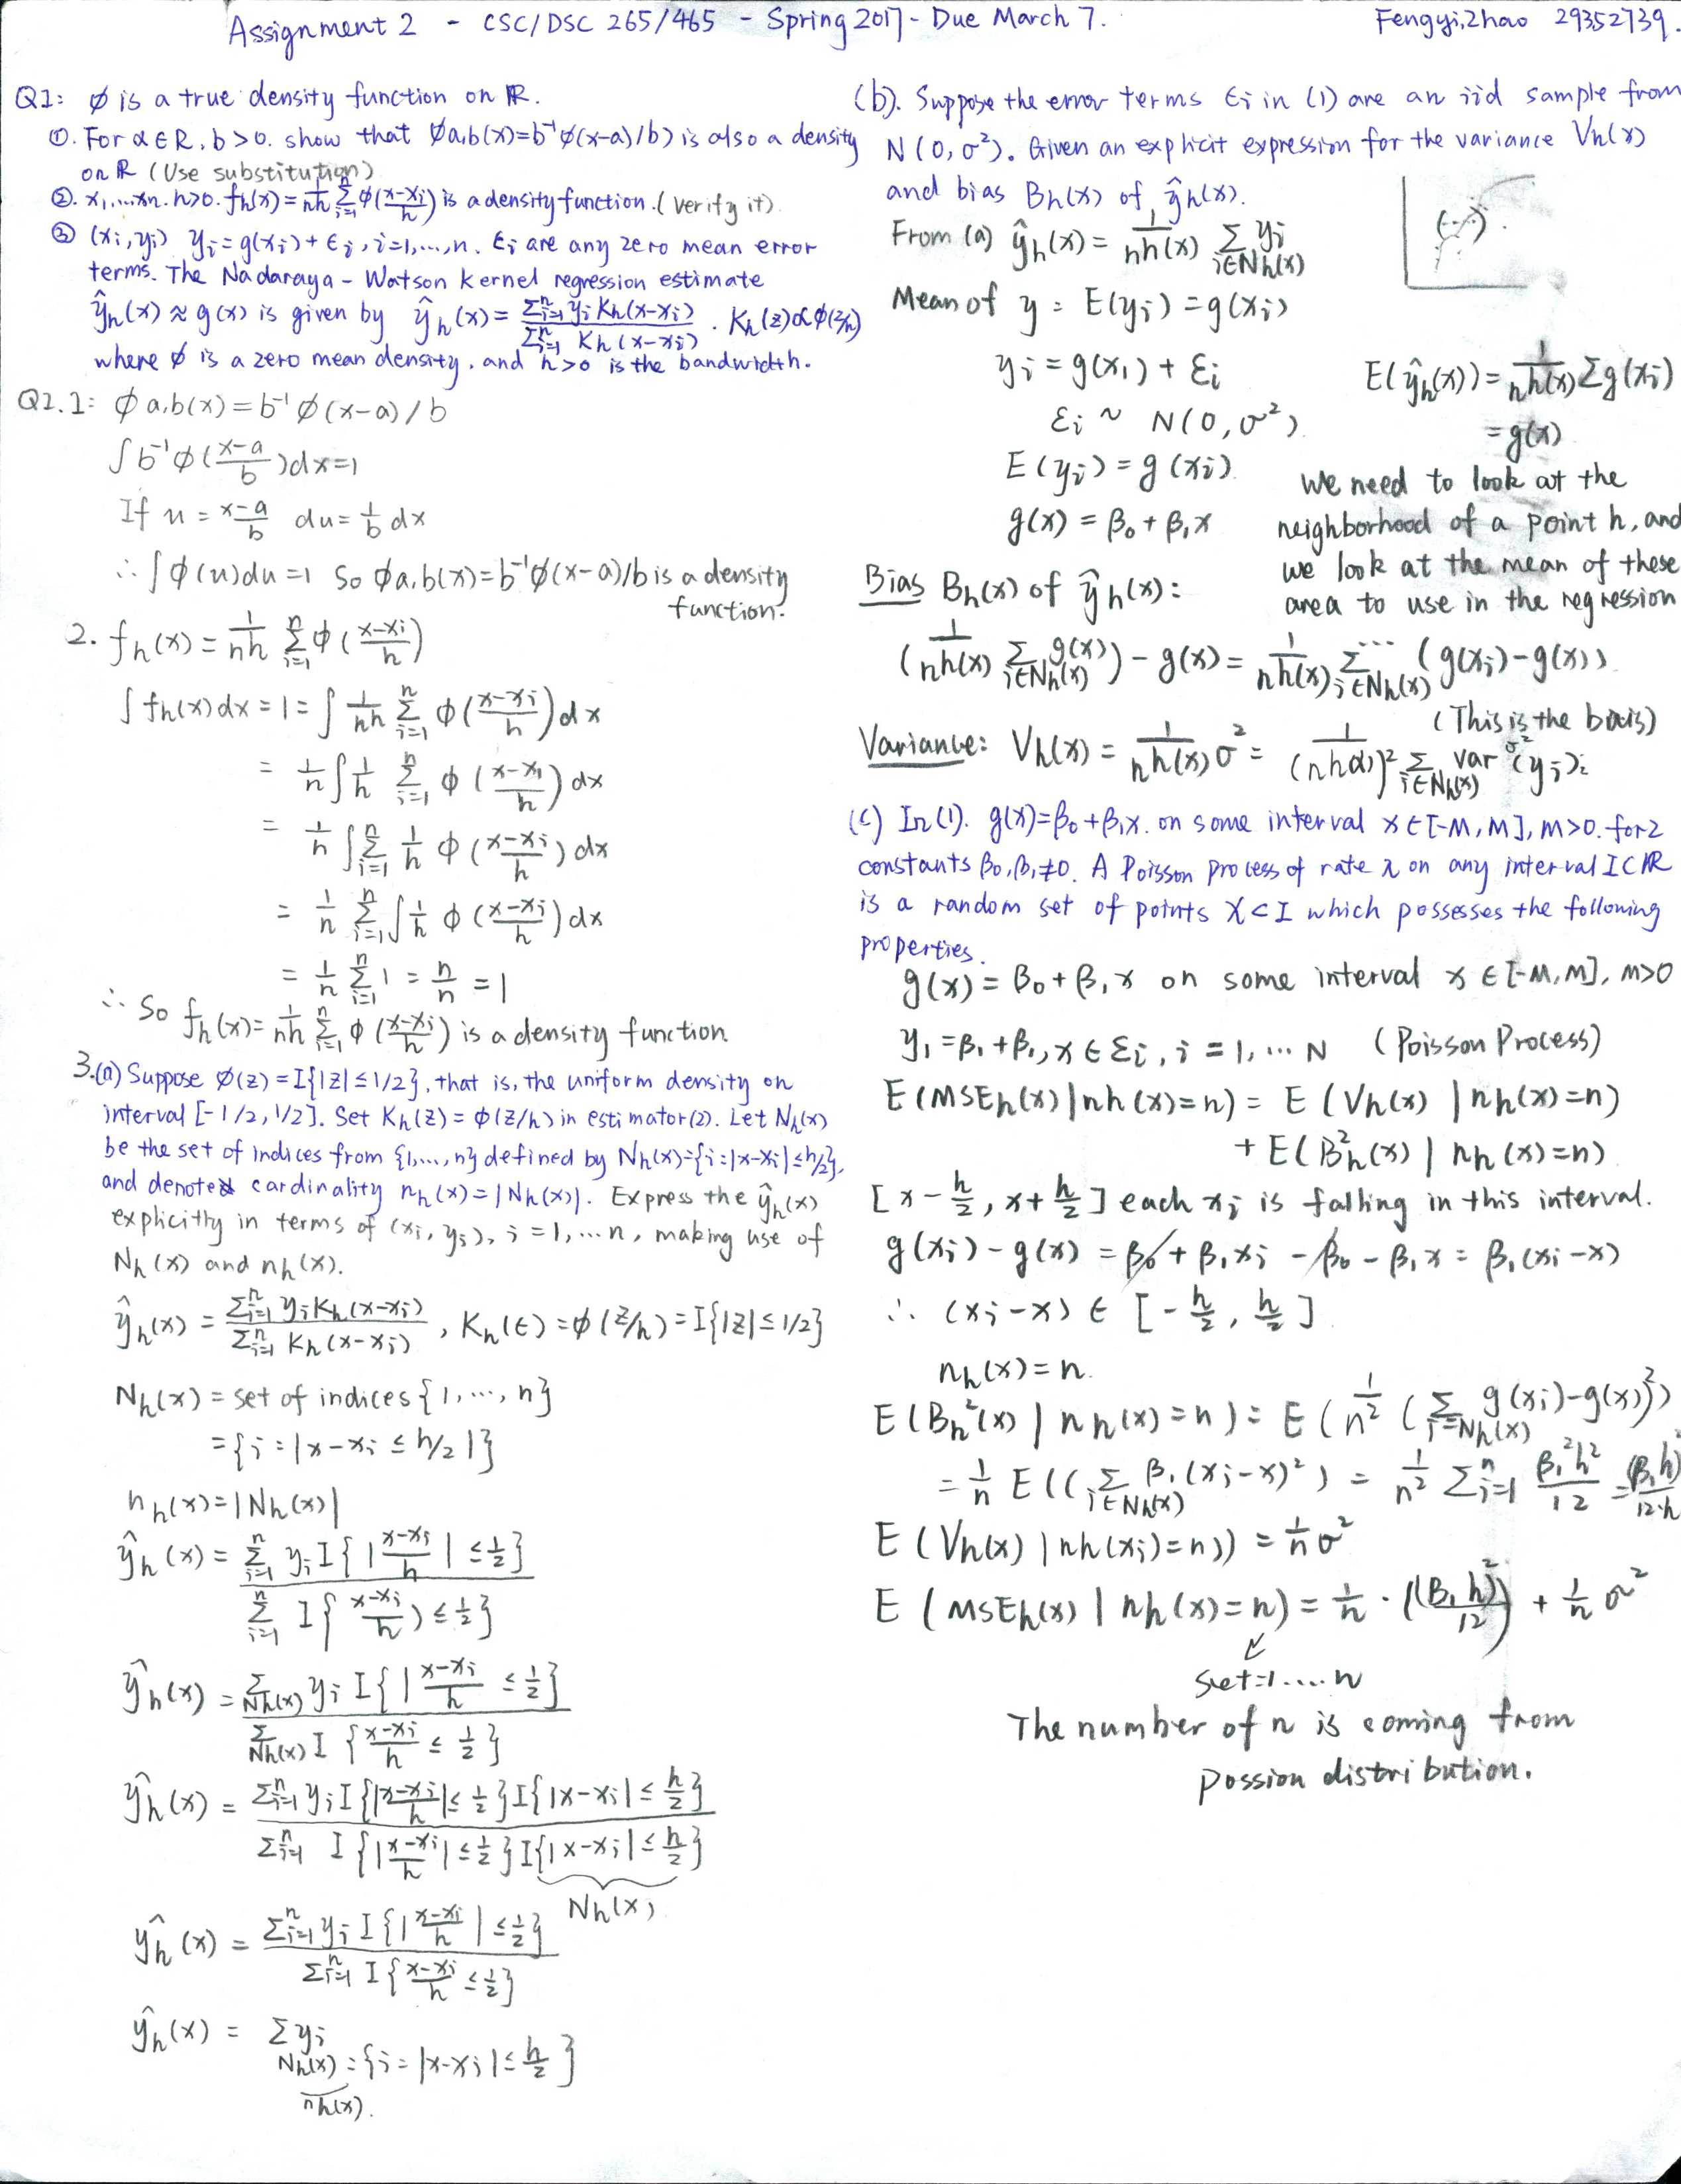 Assignment 2 - CSC/DSC 265/465 - Spring 2017 - Due March 7.
Fengyi, Zhao 29352739.
Q1: ϕ is a true density function on R.
①. For α∈R, b>0. show that ϕa,b(x)=b⁻¹ϕ(x-a)/b) is also a density
on R (Use substitution)
②. x₁,...xn. h>0. fh(x)=1/nh Σⁿᵢ₌₁ ϕ(x-xi/h) is a density function. (verify it).
③ (xi,yi) yi=g(xi)+Ei, i=1,...,n. Ei are any zero mean error
terms. The Nadaraya-Watson kernel regression estimate
ŷh(x)≈g(x) is given by ŷh(x)=Σⁿᵢ₌₁ yi Kh(x-xi) / Σⁿᵢ₌₁ Kh(x-xi). Kh(z)∝ϕ(z/h)
where ϕ is a zero mean density, and h>0 is the bandwidth.
Q1.1: ϕa,b(x)=b⁻¹ϕ(x-a)/b
∫b⁻¹ϕ(x-a/b)dx=1
If u=x-a/b du=1/b dx
∴∫ϕ(u)du=1 So ϕa,b(x)=b⁻¹ϕ(x-a)/b is a density
function.
2. fh(x)=1/nh Σⁿᵢ₌₁ ϕ(x-xi/h)
∫fh(x)dx=1=∫1/nh Σⁿᵢ₌₁ ϕ(x-xi/h)dx
=1/n∫1/h Σⁿᵢ₌₁ ϕ(x-xi/h)dx
=1/n∫Σⁿᵢ₌₁ 1/h ϕ(x-xi/h)dx
=1/n Σⁿᵢ₌₁∫1/h ϕ(x-xi/h)dx
=1/n Σⁿᵢ₌₁ 1=n/n=1
∴ So fh(x)=1/nh Σⁿᵢ₌₁ ϕ(x-xi/h) is a density function.
3.(a) Suppose ϕ(z)=I{|z|≤1/2}, that is, the uniform density on
interval [-1/2,1/2]. Set Kh(z)=ϕ(z/h) in estimator(2). Let Nh(x)
be the set of indices from {1,...,n} defined by Nh(x)={i:|x-xi|≤h/2},
and denote cardinality nh(x)=|Nh(x)|. Express the ŷh(x)
explicitly in terms of (xi,yi), i=1,...n, making use of
Nh(x) and nh(x).
ŷh(x)=Σⁿᵢ₌₁ yiKh(x-xi) / Σⁿᵢ₌₁ Kh(x-xi), Kh(t)=ϕ(z/h)=I{|z|≤1/2}
Nh(x)=set of indices {1,...,n}
={i:|x-xi≤h/2|}
nh(x)=|Nh(x)|
ŷh(x)=Σⁿᵢ₌₁ yi I{|x-xi/h|≤1/2} / Σⁿᵢ₌₁ I{x-xi/h)≤1/2}
ŷh(x)=Σ Nh(x) yi I{|x-xi/h≤1/2} / Σ Nh(x) I{x-xi/h≤1/2}
ŷh(x)=Σⁿᵢ₌₁ yi I{|x-xi/h|≤1/2}I{|x-xi|≤h/2} / Σⁿᵢ₌₁ I{|x-xi/h|≤1/2}I{|x-xi|≤h/2}
Nh(x)
ŷh(x)=Σⁿᵢ₌₁ yi I{|x-xi/h|≤1/2} / Σⁿᵢ₌₁ I{x-xi/h≤1/2}
ŷh(x)=Σyi
Nh(x)={i=|x-xi|≤h/2}
nh(x).
(b). Suppose the error terms Ei in (1) are an iid sample from
N(0,σ²). Given an explicit expression for the variance Vh(x)
and bias Bh(x) of ŷh(x).
From (a) ŷh(x)=1/nh(x) Σ i∈Nh(x) yi
Mean of y = E(yi)=g(xi)
yi=g(x₁)+Ei
Ei~N(0,σ²)
E(yi)=g(xi)
g(x)=β₀+β₁x
E(ŷh(x))=1/nh(x) Σg(xi)
=g(x)
we need to look at the
neighborhood of a point h, and
we look at the mean of these
area to use in the regression
Bias Bh(x) of ŷh(x):
(1/nh(x) Σ i∈Nh(x) g(x))-g(x)=1/nh(x) Σ i∈Nh(x) ... (g(xi)-g(x))
(This is the bias)
Variance: Vh(x)=1/nh(x) σ²=1/(nh(x))² Σ i∈Nh(x) var (yi) σ²
(c) In(1). g(x)=β₀+β₁x. on some interval x∈[-M,M], M>0. for 2
constants β₀,β₁≠0. A Poisson process of rate λ on any interval I⊂R
is a random set of points X⊂I which possesses the following
properties.
g(x)=β₀+β₁x on some interval x∈[-M,M], M>0
y₁=β₁+β₁,x∈Ei, i=1,...N (Poisson Process)
E(MSEh(x)|nh(x)=n)=E(Vh(x)|nh(x)=n)
+E(B²h(x)|nh(x)=n)
[x-h/2, x+h/2] each xi is falling in this interval.
g(xi)-g(x)=β₀+β₁xi-β₀-β₁x=β₁(xi-x)
∴(xi-x)∈[-h/2, h/2]
nh(x)=n.
E(Bh²(x)|nh(x)=n)=E(1/n²(Σ i=Nh(x) g(xi)-g(x))²)
=1/n E((Σ i∈Nh(x) β₁(xi-x)²)=1/n² Σⁿᵢ₌₁ β₁²h²/12=(β₁h)²/12·n
E(Vh(x)|nh(xi)=n))=1/n σ²
E(MSEh(x)|nh(x)=n)=1/n·((β₁h)²/12)+1/n σ²
set=1....n
The number of n is coming from
possion distribution.